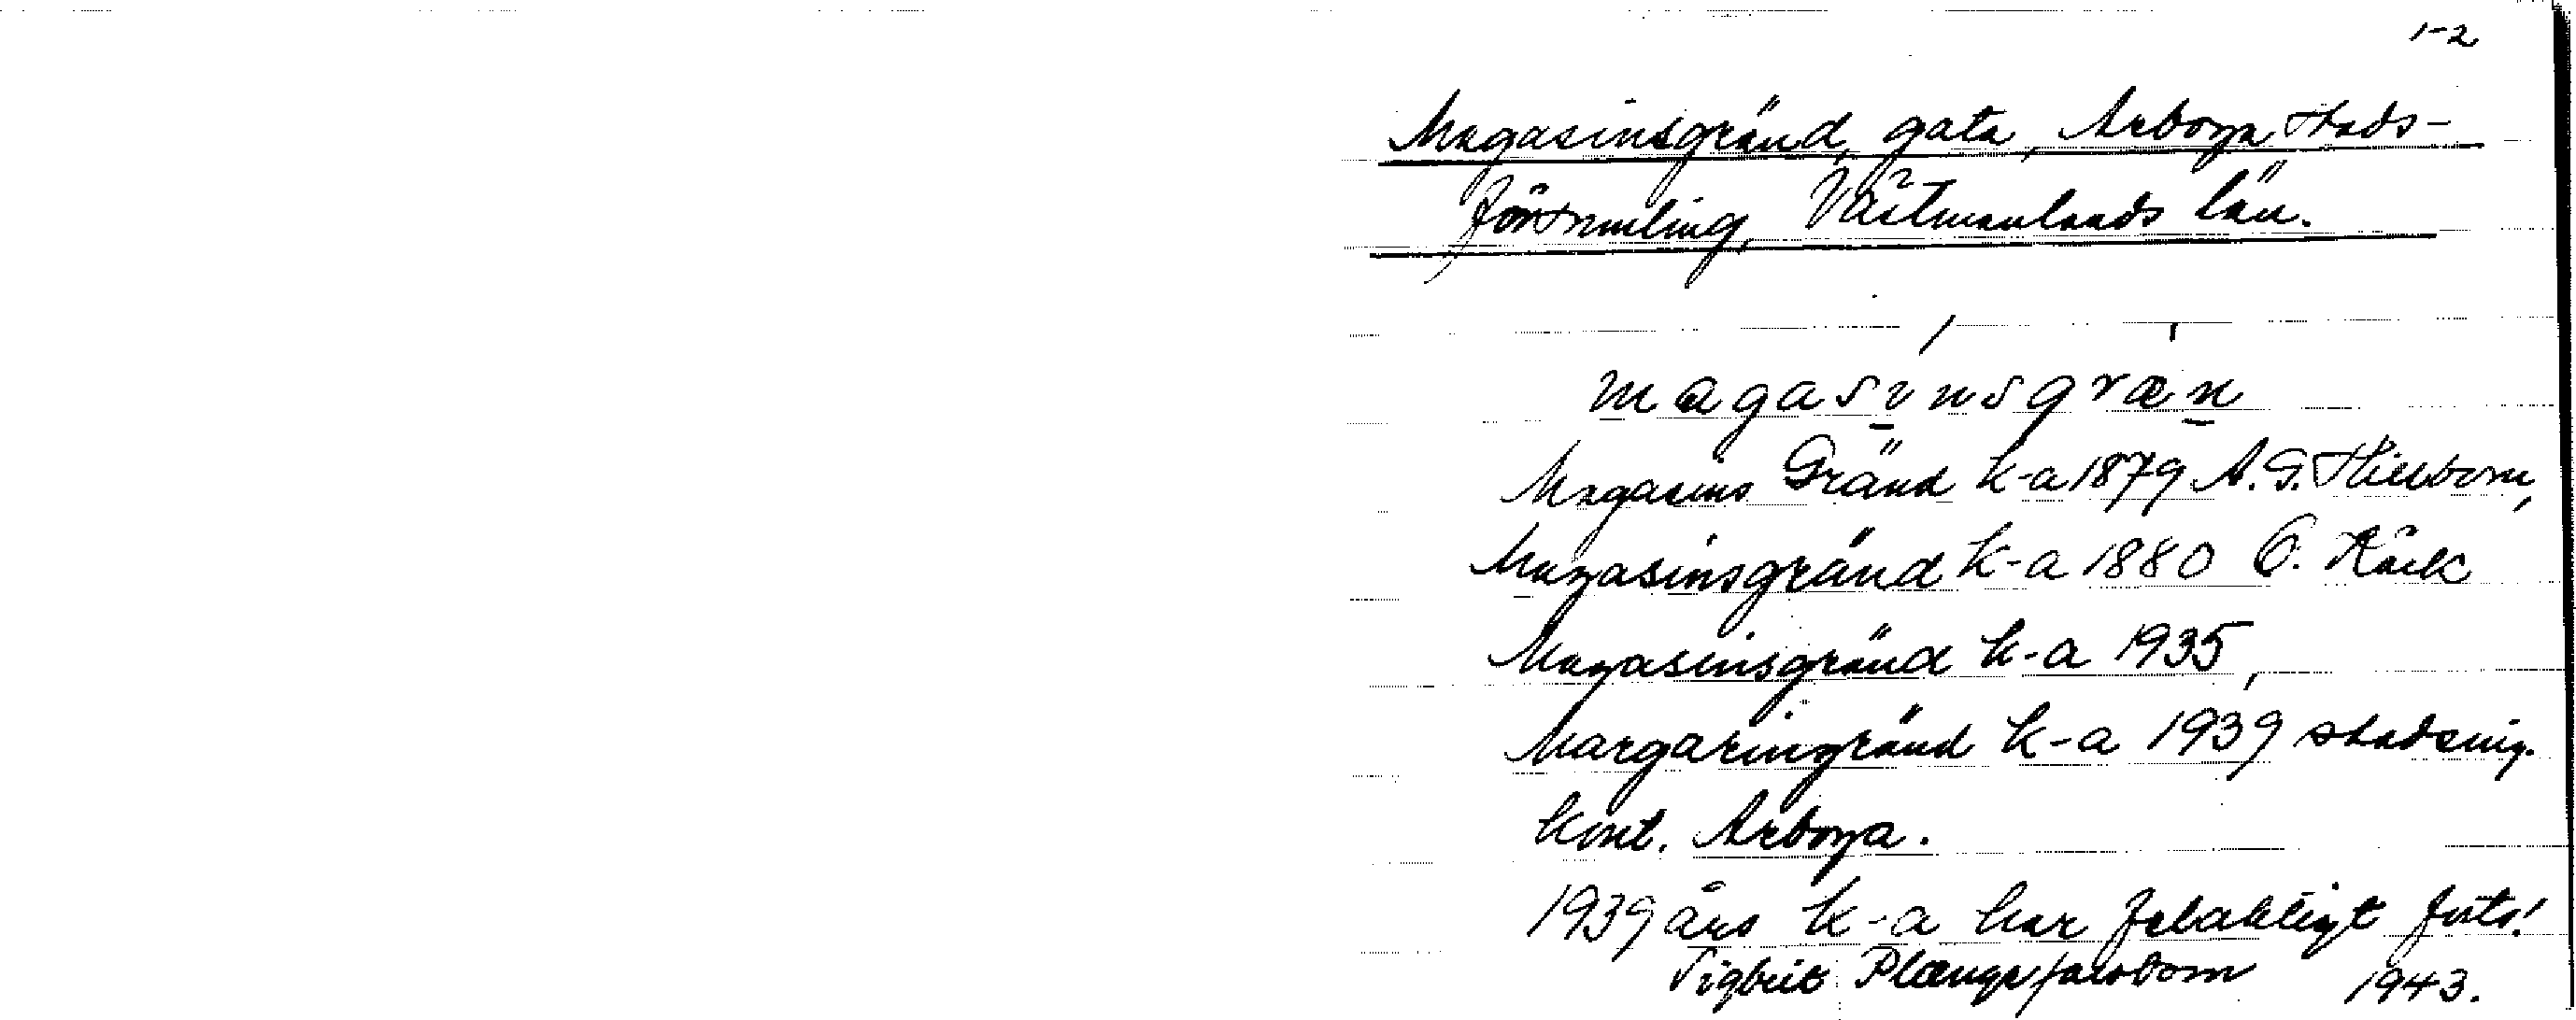 1-2
Magasinsgränd, gata, Arboga stads-
församling, Västmanlands län.
magasinsgræn
Magasins Gränd k-a 1879 A. G.
Magasinsgränd k-a 1880 O. Käck
Magasinsgränd k-a 1935,
Margaringränd k-a 1939 stadsing.
kont. Arboga.
1939 års k-a har felaktigt
Sigbrit Plænge Jacobson 1943.